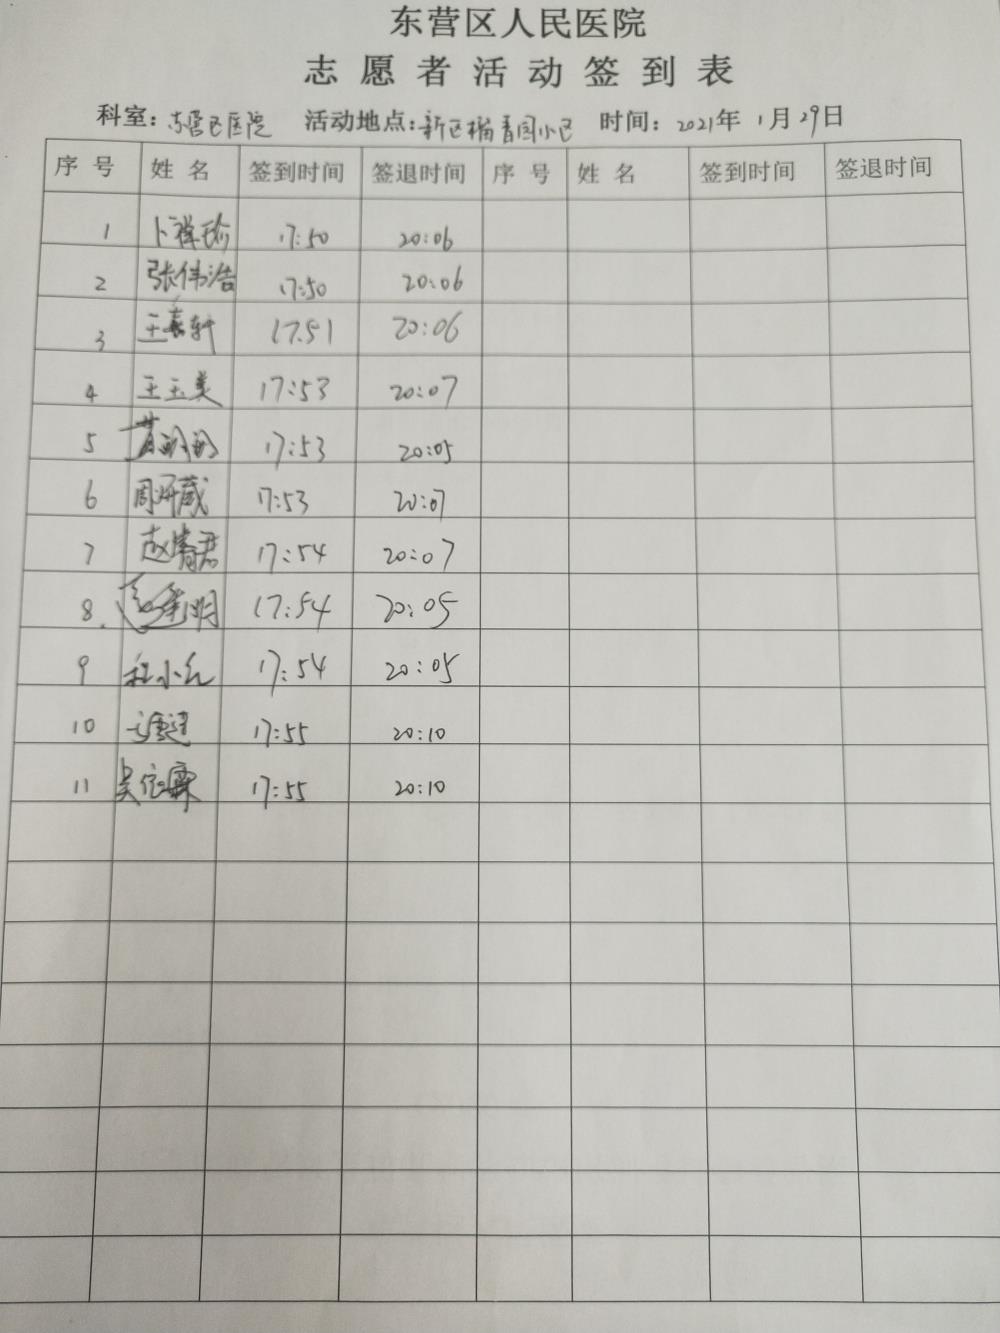 东营区人民医院
志愿者活动签到表
科室：东营区医院 活动地点：新区榆香园小区 时间：2021年1月29日
序号 姓名 签到时间 签退时间 序号 姓名 签到时间 签退时间
1 卜祥瑜 17:50 20:06
2 张伟浩 17:50 20:06
3 王嘉轩 17:51 20:06
4 王玉美 17:53 20:07
5 17:53 20:05
6 周妍葳 17:53 20:07
7 赵靖君 17:54 20:07
8. 17:54 20:05
9 程小红 17:54 20:05
10 17:55 20:10
11 吴依霖 17:55 20:10